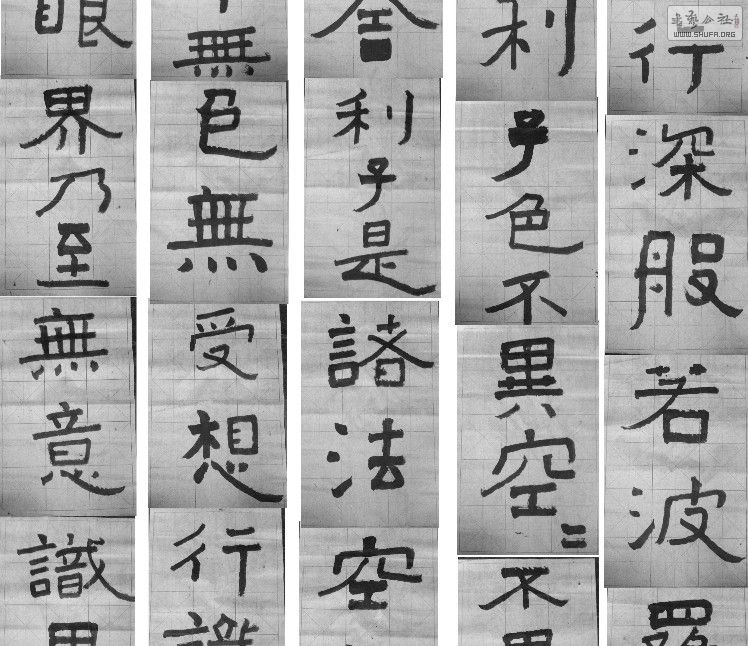 行深般若波羅
利子色不異空〻不異
舍利子是諸法空
無色無受想行識
眼界乃至無意識界
書藝公社
WWW.SHUFA.ORG